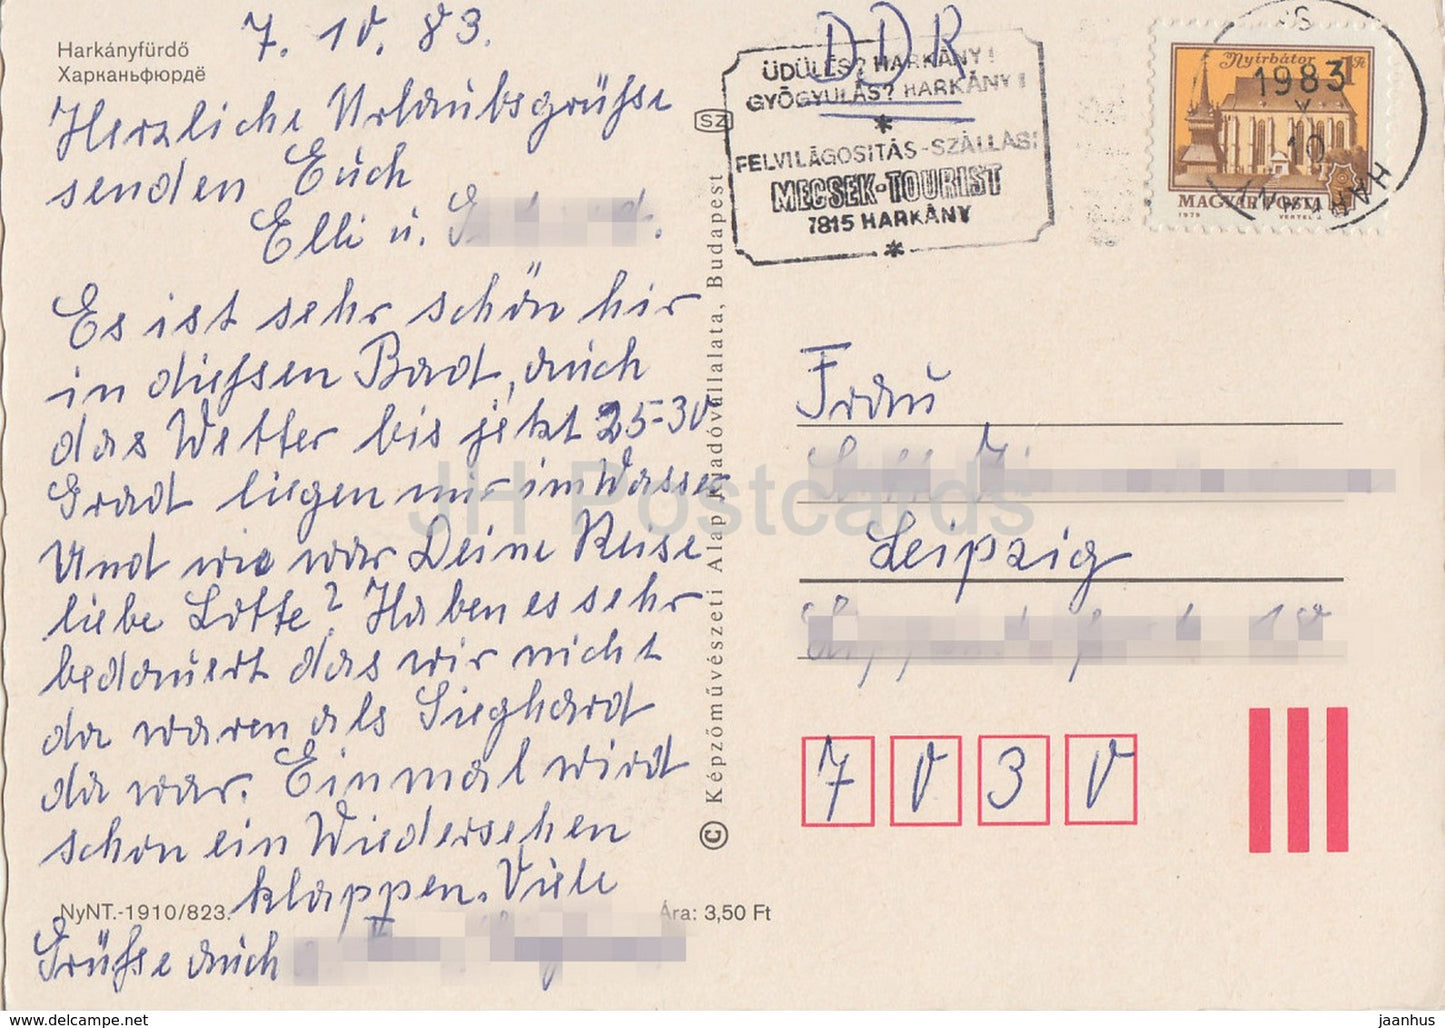 Harkányfürdő
Харканьфюрдё
7. 10. 83.
Herzliche Urlaubsgrüße
senden Euch
Elli u.
Es ist sehr schön hir
in dießen Bad, auch
das Wetter bis jetzt 25-30
Grad liegen mir im Wasser
Und wie war Deine Reise
liebe Lotte? Haben es sehr
bedauert das wir nicht
da waren als Sieghard
da war. Einmal wird
schon ein Wiedersehen
klappen. Viele
Grüße auch
NyNT.-1910/823.
Ára: 3,50 Ft
© Képzőművészeti Alap Kiadóvállalata, Budapest
SZ
DDR
ÜDÜLÉS? HARKÁNY!
GYÓGYULÁS? HARKÁNY!
*
FELVILÁGOSITÁS-SZÁLLÁS:
MECSEK-TOURIST
7815 HARKÁNY
*
Nyírbátor 1 Ft
1983
V
10
HARKÁNY
MAGYAR POSTA
1979 VERTEL
Frau
Leipzig
7030
JH Postcards
www.delcampe.net
jaanhus